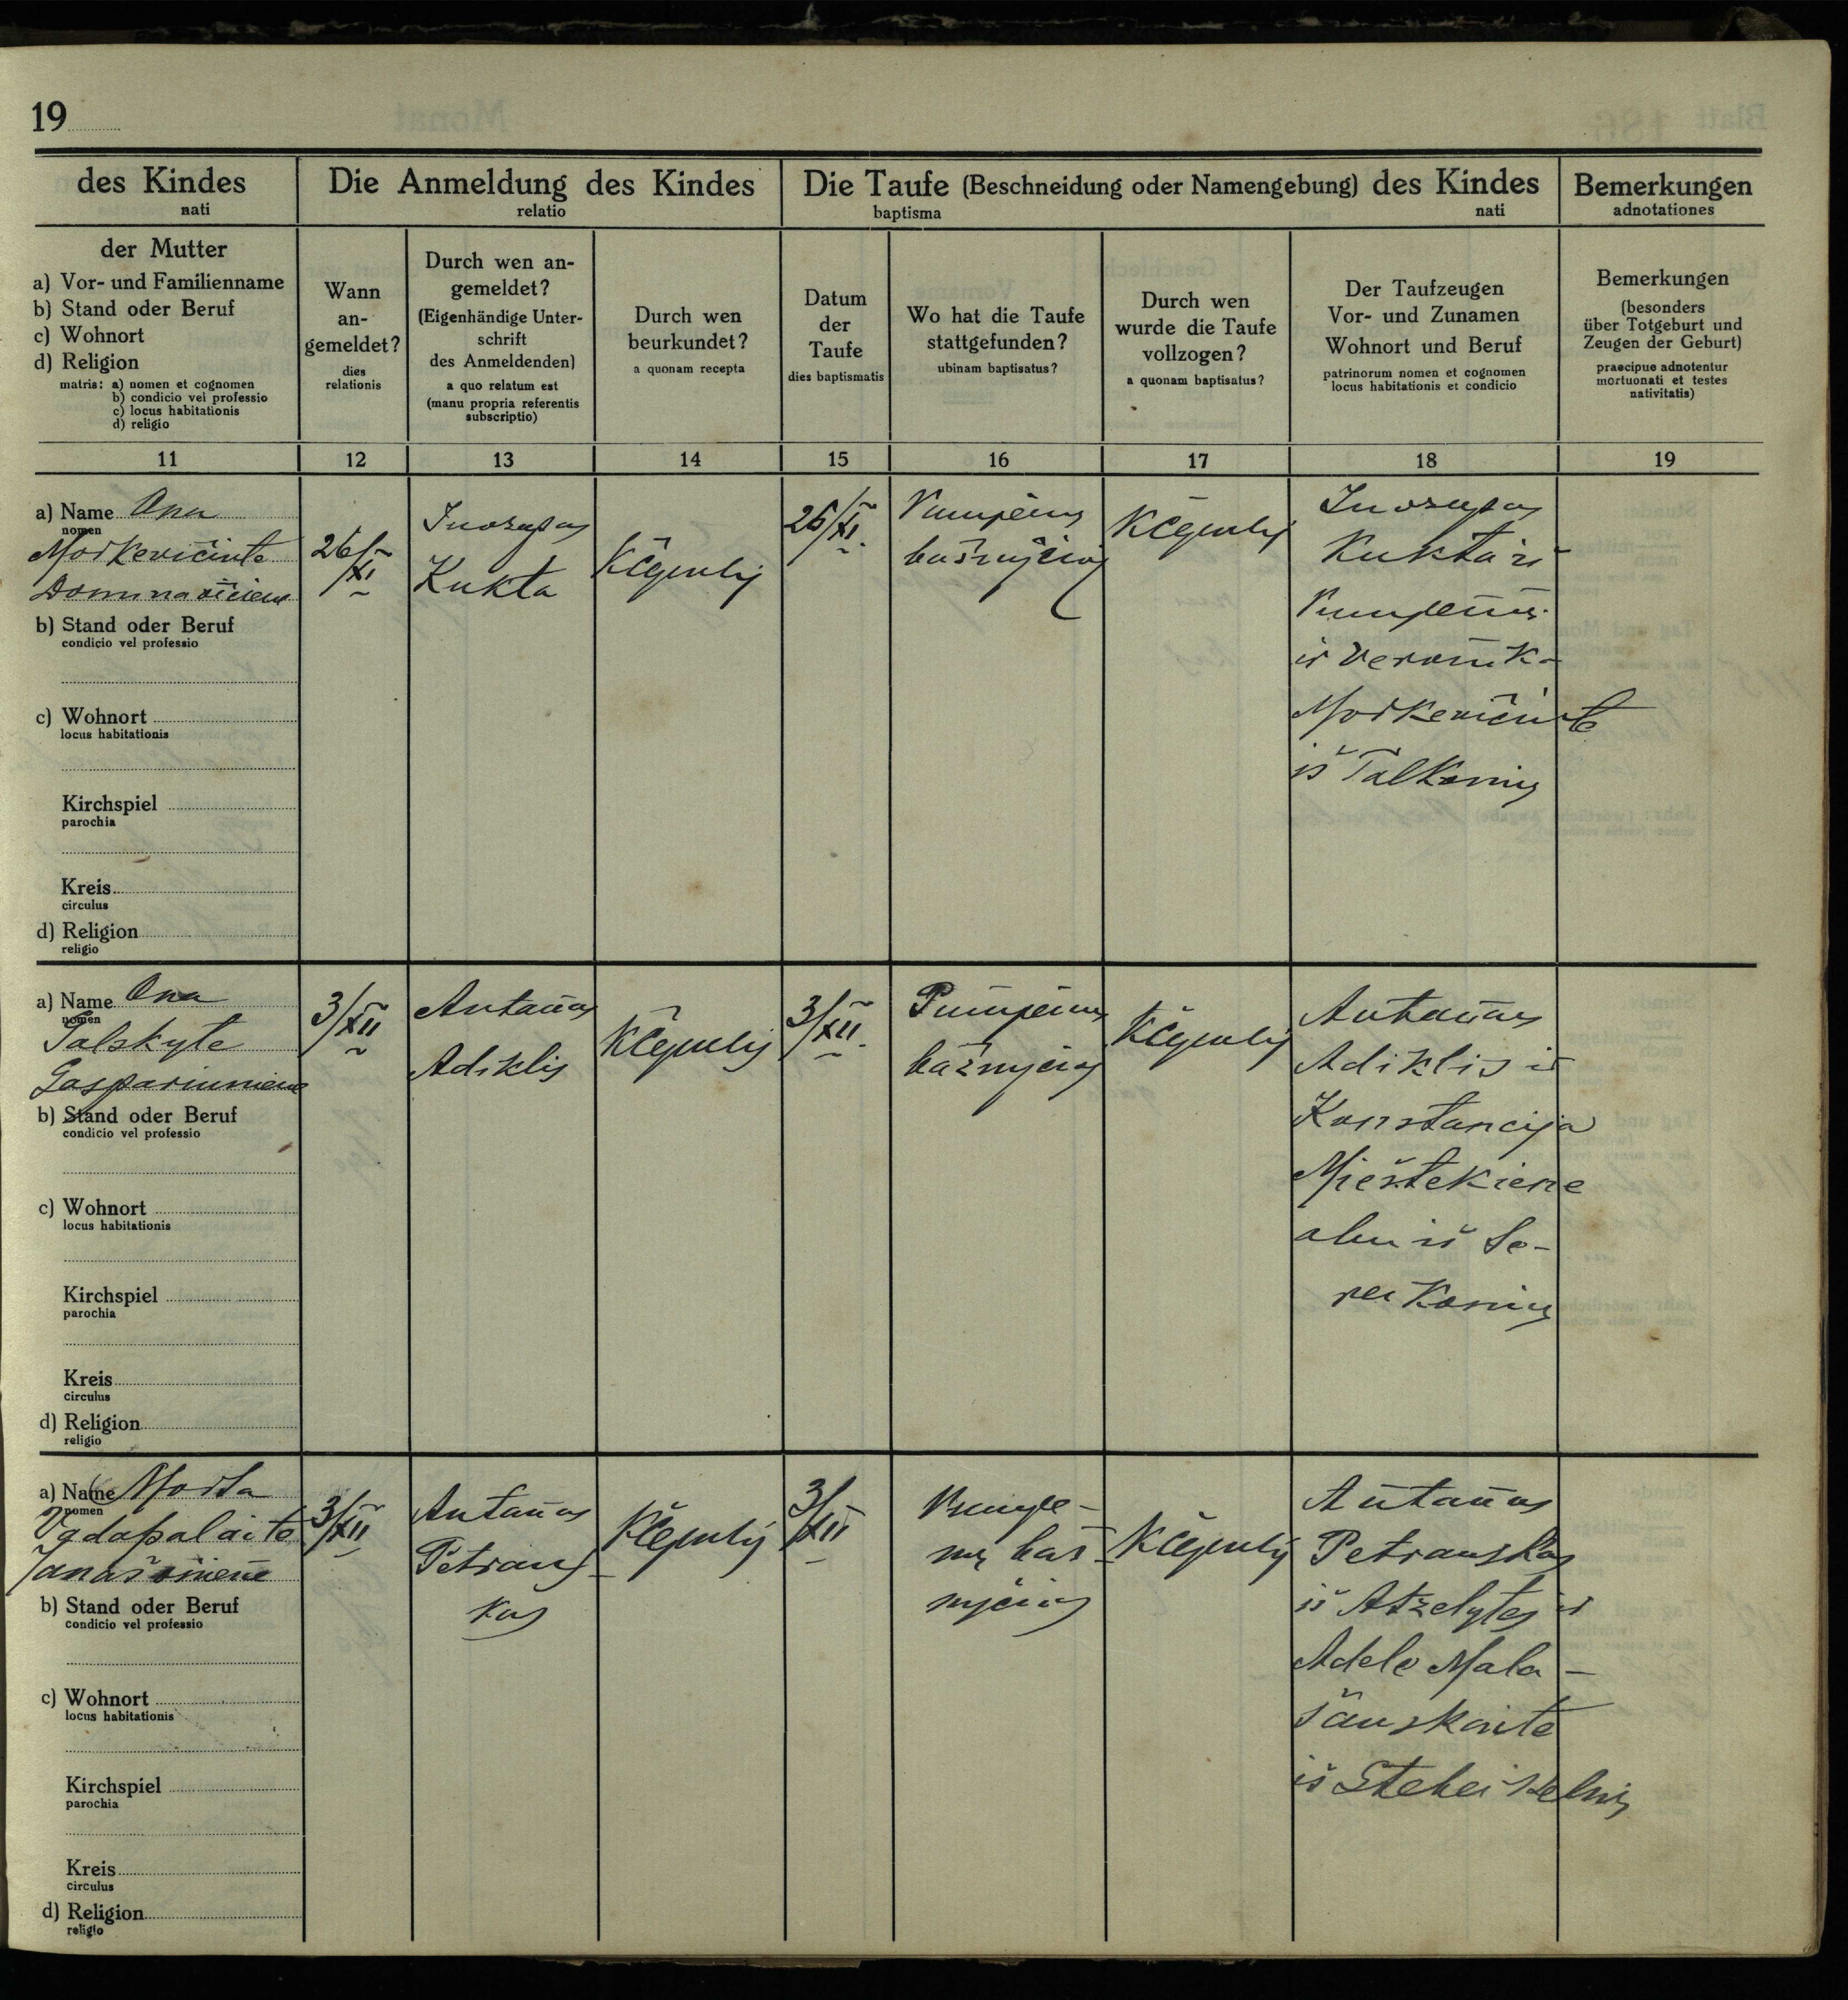 19
des Kindes
nati
Die Anmeldung des Kindes
relatio
Die Taufe (Beschneidung oder Namengebung) des Kindes
baptisma nati
Bemerkungen
adnotationes
der Mutter
a) Vor- und Familienname
b) Stand oder Beruf
c) Wohnort
d) Religion
matris: a) nomen et cognomen
b) condicio vel professio
c) locus habitationis
d) religio
Wann
an-
gemeldet?
dies
relationis
Durch wen an-
gemeldet?
(Eigenhändige Unter-
schrift
des Anmeldenden)
a quo relatum est
(manu propria referentis
subscriptio)
Durch wen
beurkundet?
a quonam recepta
Datum
der
Taufe
dies baptismatis
Wo hat die Taufe
stattgefunden?
ubinam baptisatus?
Durch wen
wurde die Taufe
vollzogen?
a quonam baptisatus?
Der Taufzeugen
Vor- und Zunamen
Wohnort und Beruf
patrinorum nomen et cognomen
locus habitationis et condicio
Bemerkungen
(besonders
über Totgeburt und
Zeugen der Geburt)
praecipue adnotentur
mortuonati et testes
nativitatis)
11 12 13 14 15 16 17 18 19
a) Name Ona
nomen
Morkevičiute
b) Stand oder Beruf
condicio vel professio
c) Wohnort
locus habitationis
Kirchspiel
parochia
Kreis
circulus
d) Religion
religio
26/XI
Juozapas
Kukta
26/XI.
Pumpėnų
bažnyčioj
Juozapas
Kukta iš
Pumpėnų
ir Veronik-
Morkevičiute
iš Talkonių
a) Name Ona
nomen
Salskyte
Gaspariuniene
b) Stand oder Beruf
condicio vel professio
c) Wohnort
locus habitationis
Kirchspiel
parochia
Kreis
circulus
d) Religion
religio
3/XII
Antanas
Adiklis
3/XII.
Pumpėnų
bažnyčioj
Antanas
Adiklis ir
Konstancija
Miestekiene
abu iš
a) Name Morta
nomen
b) Stand oder Beruf
condicio vel professio
c) Wohnort
locus habitationis
Kirchspiel
parochia
Kreis
circulus
d) Religion
religio
3/XII
Antanas
Petraus-
kas
3/XII
Pumpė-
nų baž-
nyčioj
Antanas
Petrauskas
iš Atželytės ir
Adele Mala-
šauskaite
iš